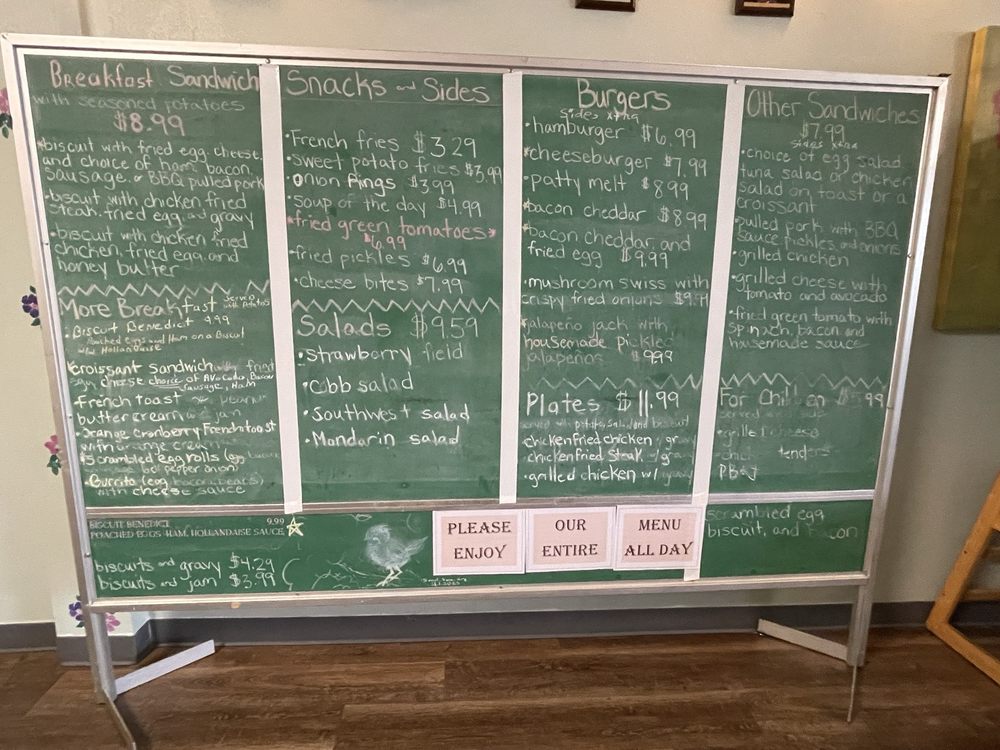 Breakfast Sandwich
with seasoned potatoes
$8.99
*biscuit with fried egg, cheese,
and choice of ham, bacon,
sausage, or BBQ pulled pork
•biscuit with chicken fried
steak, fried egg, and gravy
•biscuit with chicken fried
chicken, fried egg, and
honey butter
More Breakfast served with potatoes
•Biscuit Benedict 9.99
Poached eggs and Ham on a Biscuit
w/ Hollandaise
croissant sandwich fried
egg, cheese choice of Avocado, Bacon
Sausage, Ham
French toast
buttercream jam
•Orange Cranberry French toast
with orange cream
*scrambled egg rolls (egg bacon
bell pepper onion)
•Burrito (egg, bacon, beans)
with cheese sauce
BISCUIT BENEDICT 9.99
POACHED EGGS, HAM, HOLLANDAISE SAUCE
biscuits and gravy $4.29
biscuits and jam $3.99
Snacks and Sides
•French fries $3.29
•sweet potato fries $3.99
•onion rings $3.99
•soup of the day $4.99
*fried green tomatoes*
$6.99
•fried pickles $6.99
•cheese bites $7.99
Salads $9.59
•strawberry field
•Cobb salad
•Southwest salad
•Mandarin salad
Burgers
sides xtra
•hamburger $6.99
*cheeseburger $7.99
•patty melt $8.99
•bacon cheddar $8.99
•bacon cheddar and
fried egg $9.99
•mushroom swiss with
crispy fried onions
jalapeño jack with
housemade pickled
jalapeños $9.99
Plates $11.99
served with potato, salad and biscuit
chicken fried chicken w/ gravy
chicken fried steak w/ gravy
•grilled chicken w/ gravy
Other Sandwiches
$7.99
sides xtra
•choice of egg salad
tuna salad or chicken
salad on toast or a
croissant
•pulled pork with BBQ
sauce pickles, and onions
•grilled chicken
•grilled cheese with
tomato and avocado
•fried green tomato with
spinach, bacon and
housemade sauce
For Children
served side
•grilled cheese
tenders
PB&J
scrambled egg,
biscuit, and bacon
PLEASE
ENJOY
OUR
ENTIRE
MENU
ALL DAY